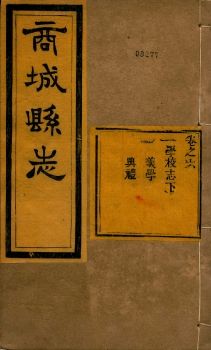 03277
商城縣志
卷之六
一學校志下
一義學
典禮